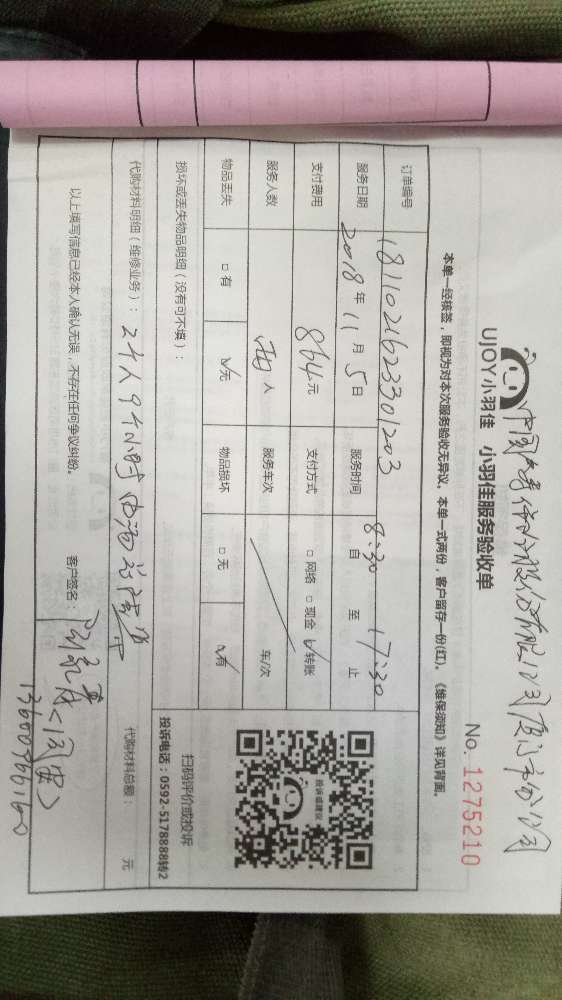 中国人寿保险股份有限公司厦门市分公司
UJOY小羽佳 小羽佳服务验收单
No. 1275210
本单一经核签，即视为对本次服务验收无异议。本单一式两份，客户留存一份(红)。《维保须知》详见背面。
订单编号 1811021623301203
服务日期 2018 年 11 月 5 日 服务时间 8:30 自 至 17:30 止
支付费用 864元 支付方式 □ 网络 □ 现金 ☑ 转账
服务人数 两 人 服务车次 车/次
物品丢失 □ 有 ☑ 无 物品损坏 □ 无 ☑ 有
损坏或丢失物品明细（没有可不填）：
投诉或建议
扫码评价或投诉
投诉电话：0592-5178888转2
代购材料明细（维修业务）：2个人9个小时 代购材料总额： 元
以上填写信息已经本人确认无误，不存在任何争议纠纷。 客户签名：